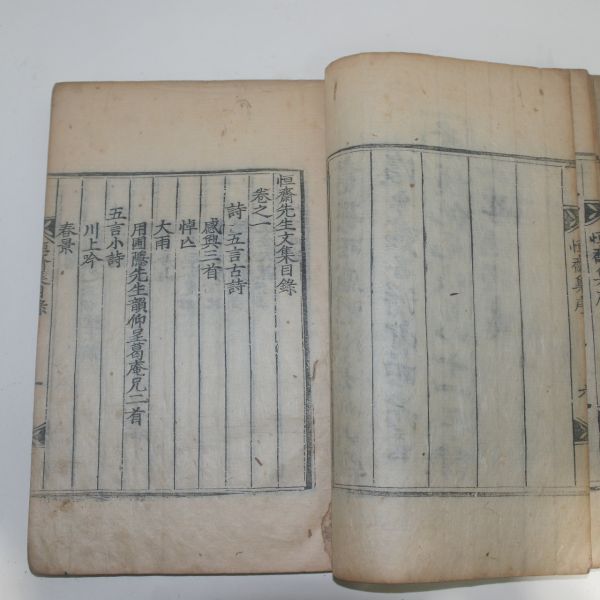 恒齋集序
六
恒齋先生文集目錄
卷之一
詩 五言古詩
感興三首
悼亡
大雨
用圃隱先生韻仰呈葛庵兄二首
五言小詩
川上吟
春景